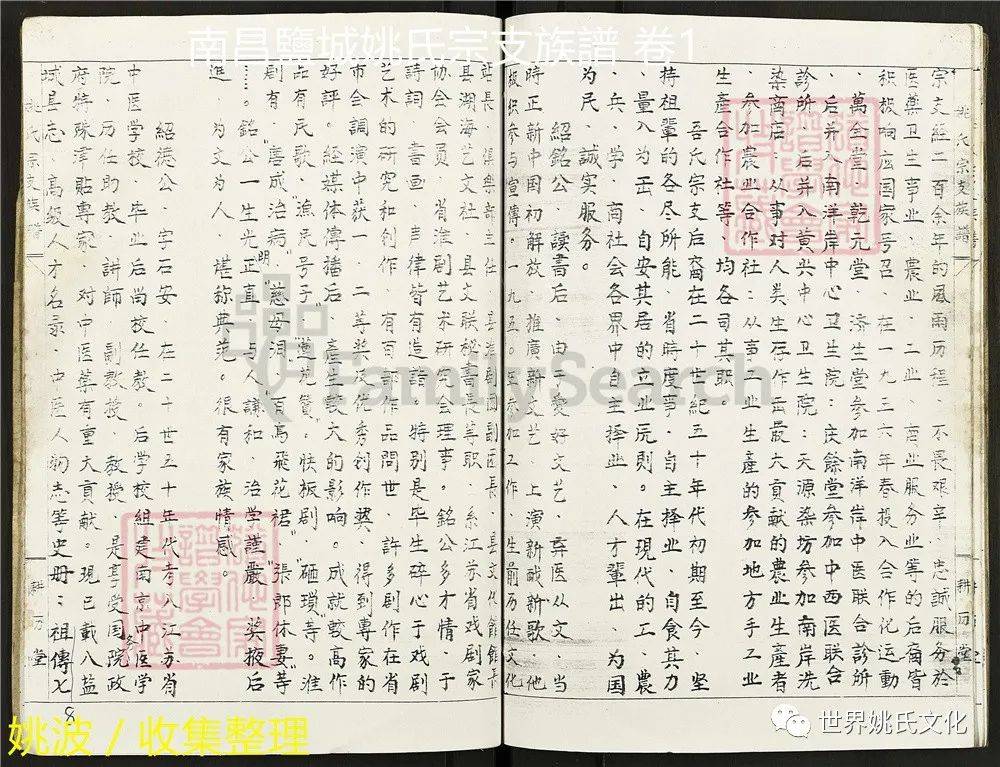 南昌鹽城姚氏宗支族譜 卷1
宗支經二百余年的風雨历程、不畏艰辛、忠誠服务於
医藥卫生事业、農业、工业、商业服务业等的后裔皆
积极响应国家号召、在一九三六年春投入合作化运動
、萬全堂、乾元堂、济生堂参加南洋岸中医联合診所
、后并入南洋岸中心卫生院：庆餘堂参加中西医联合
診所、后并入黄尖中心卫生院：天源染坊参加南岸洗
染商店：从事对人类生存作云最大貢献的農业生產者
、参加農业合作社：从事工业生產的参加地方手工业
生產合作社等、均各司其职。
吾氏宗支后裔在二十世紀五十年代初期至今、坚
持祖輩的各尽所能、省時度事、自主择业、自食其力
、量入为云、自安其居的立业
，兵、学、商社会各界中自主择业、人才輩出、为国
为民、誠实服务。
紹銘公、读書后、由于爱好文艺、弃医从文、当
時正新中国初解放、推廣新文艺、上演新戯新歌、他
积极参与宣傳。一九五〇年参加工作、生前历任文化
站長、俱樂部主任、县淮剧団副团長、县文化館館長
县湖海艺文社、县文联秘書長等职、系江苏省戏剧家
协会会員、省淮剧艺术研究会理事。銘公多才情、于
詩詞、書画、声律皆有造詣、特别是毕生碎心于戏剧
艺术的研究和創作、有百部作品問世、許多剧作在省
市会調演中获一、二等奖及优秀創作奬、得到專家的
好評。经媒体傳播后、產生較大的影响。成就較高作
品有"民歌"、"漁民号子"、"
剧有"善成治病"、"慈母泪"、"百鳥飛花裙"、"張郎休妻"等
……。銘公一生光明正直、与人謙和、治学謹嚴、奖掖后
進、为文为人、堪称典范。很有家族情感。
紹德公、字石安、在二十世五十年代考入江苏省
中医学校、毕业后尚校任教。后学校組建南京中医学
院、历任助教、講師、副教授、教授、是享受国务院政
府特殊津貼專家、对中医藥有重大貢献。現已載入盐
城县志、高级人才名录、中医人物志等史册：祖傳七
姚氏宗支族譜
耕历堂
8
姚波 / 收集整理
FamilySearch
世界姚氏文化